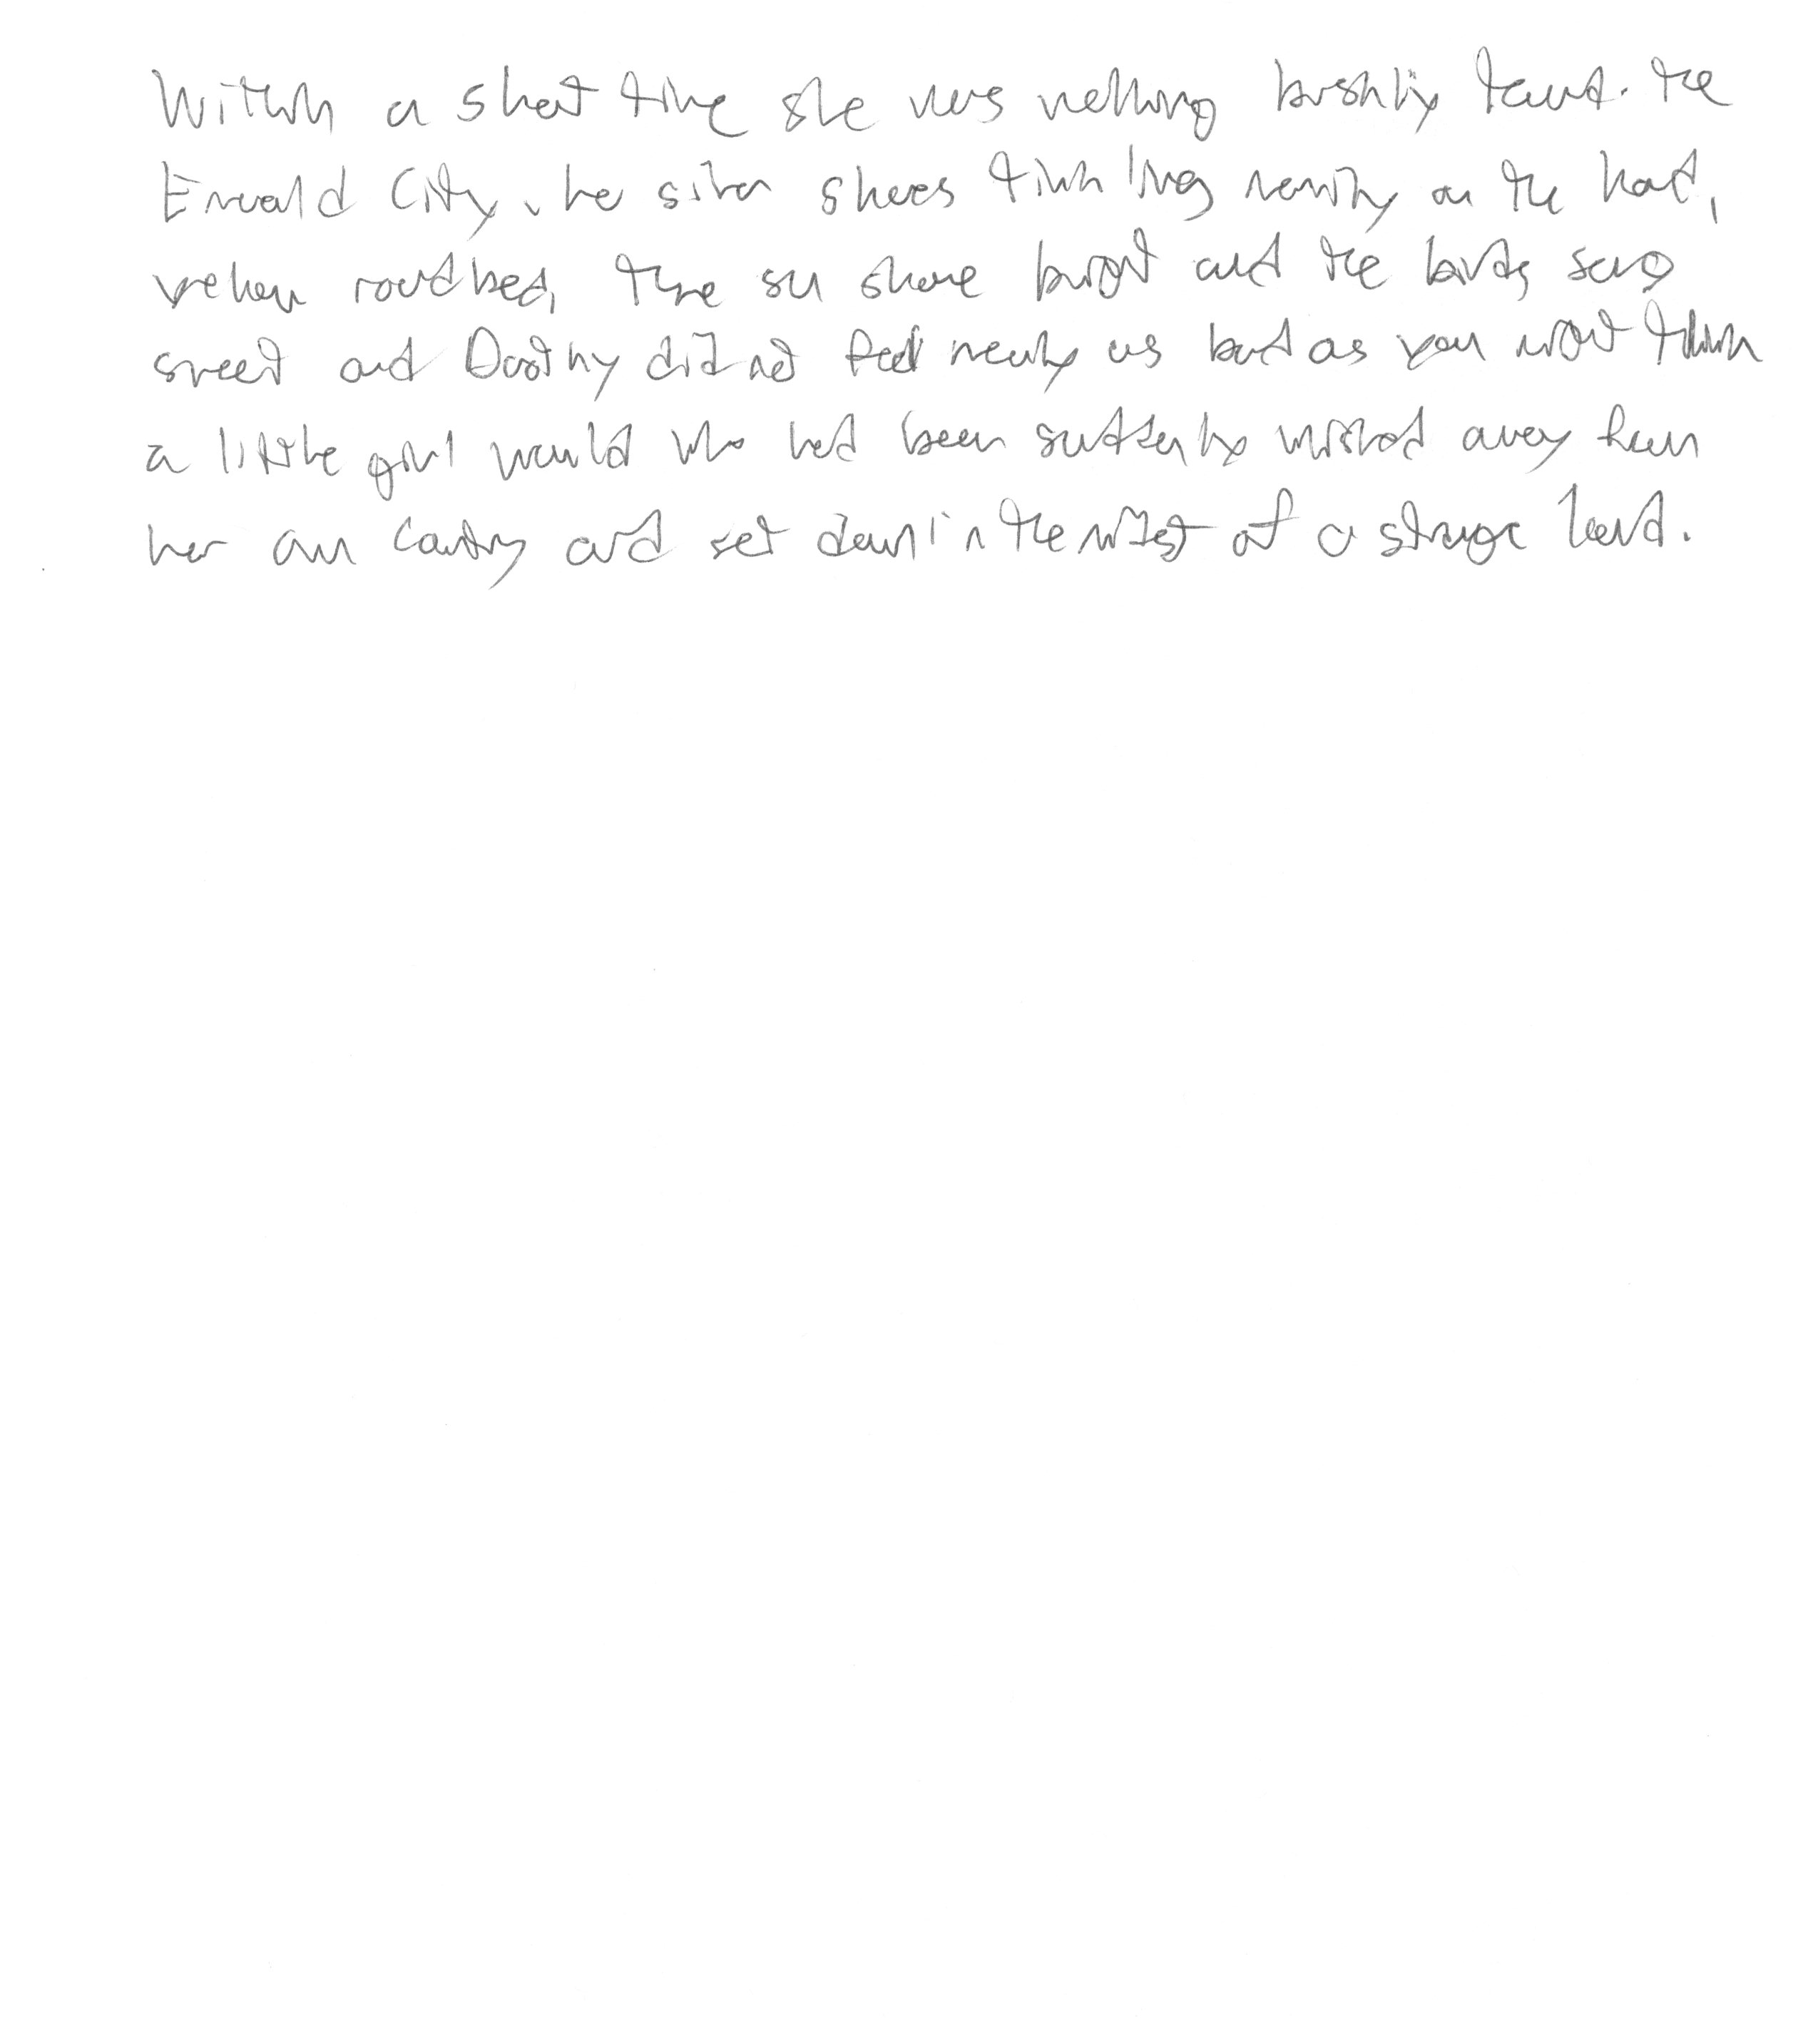 Within a short time she was walking briskly toward the
Emerald City, her silver shoes tinkling merrily on the hard,
yellow roadbed. The sun shone bright and the birds sang
sweet and Dorothy did not feel nearly as bad as you might think
a little girl would who had been suddenly whisked away from
her own country and set down in the midst of a strange land.